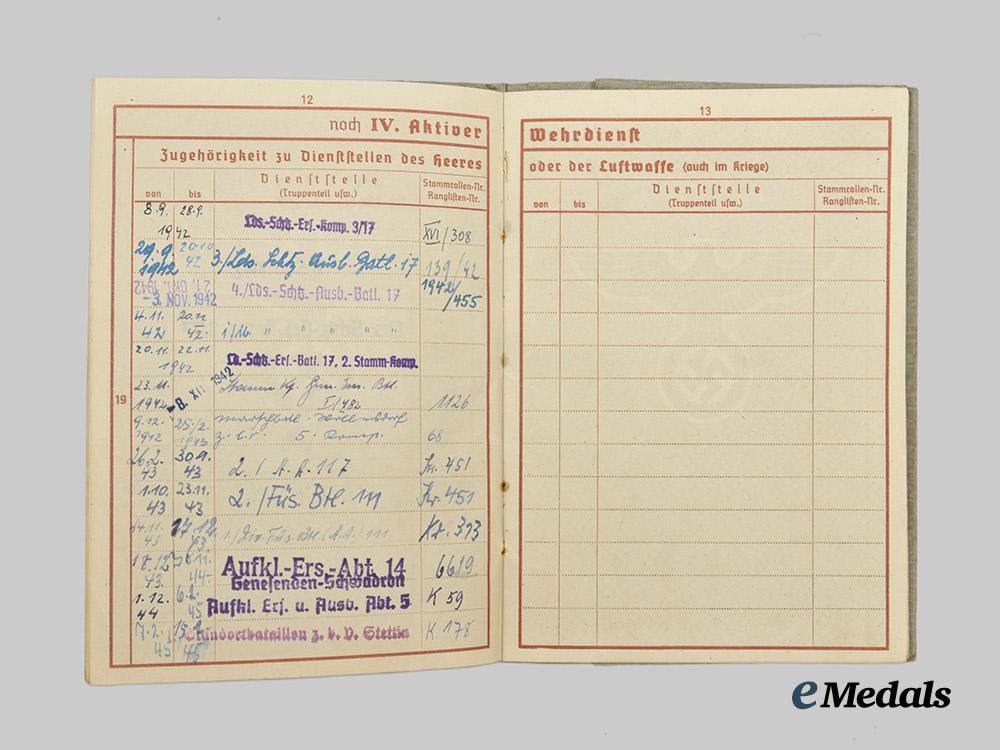 12
noch IV. Aktiver
Zugehörigkeit zu Dienststellen des Heeres
von
bis
Dienststelle
(Truppenteil usw.)
Stammrollen-Nr.
Ranglisten-Nr.
3.9. 28.9.
1942
Lds.-Schtz.-Ers.-Komp. 3/17
XVI/308
29.9. 20.10
1942 42
3./Lds. Schtz. Ausb. Batl. 17
139/42
21. OKT. 1942
-3. NOV. 1942
4./Lds.-Schtz.-Ausb.-Batl. 17
1942/
/455
4.11. 20.11.
42 42.
" " " "
20.11. 22.11.
1942
Ld.-Schtz.-Ers.-Batl. 17, 2. Stamm-Komp.
19
23.11.
1942
-8. XII 1942
Stamm Kp. Gren. Ers. Btl.
I/482
1126
9.12. 25./2.
1942 1943
5. Komp.
68
26.2. 30.9.
43 43
2./A.A. 117
Kr. 451
1.10. 23.11.
43 43
2./Füs. Btl. 111
Kr. 451
24.11. 17.12.
43 43
1./Div. Füs. Btl. (A.A.) 111
Kr. 393
18.12. 30.11.
43. 44.
Aufkl.-Ers.-Abt. 14
Genesenden-Schwadron
6619
1.12. 6.2.
44 45
Aufkl. Ers. u. Ausb. Abt. 5
K 59
7.2. 15.2.
45 45
Standortbataillon z. b. V. Stettin
K. 178
13
Wehrdienst
oder der Luftwaffe (auch im Kriege)
von
bis
Dienststelle
(Truppenteil usw.)
Stammrollen-Nr.
Ranglisten-Nr.
eMedals